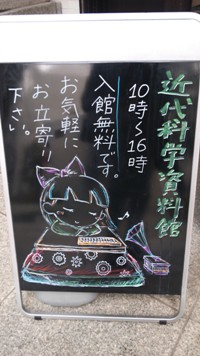 近代科学資料館
10時～16時
入館無料です。
お気軽に
お立寄り
下さい。